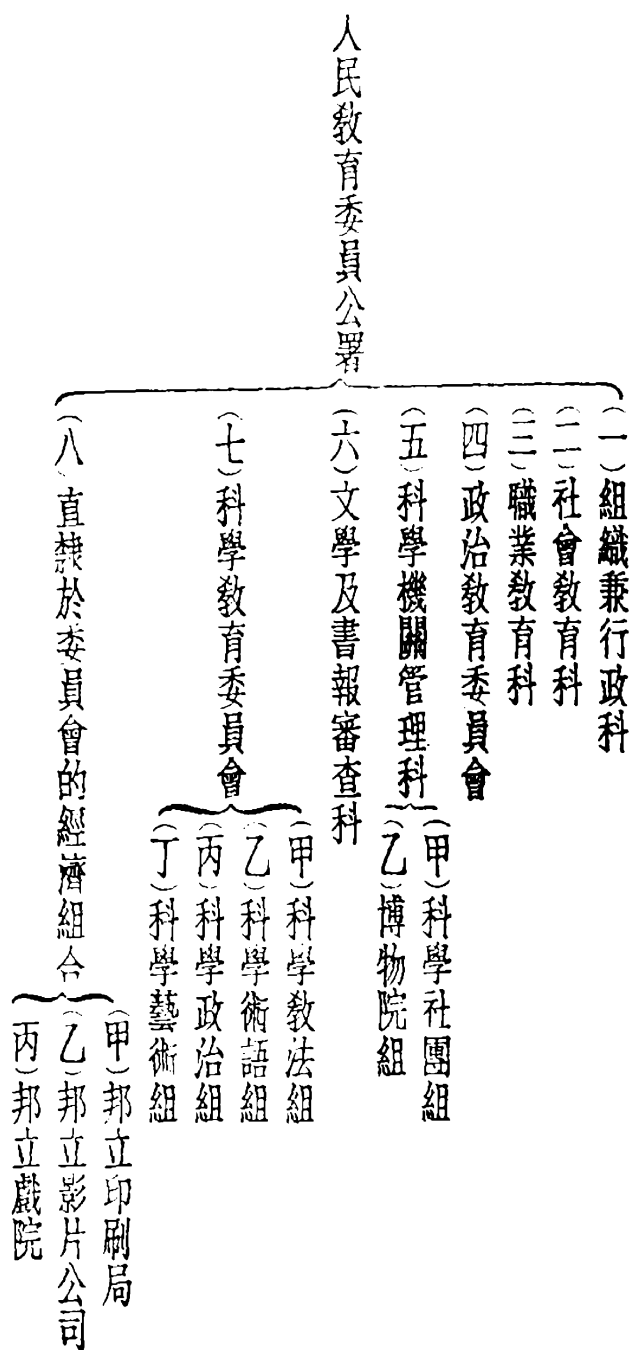 人民教育委員公署
(一)組織兼行政科
(二)社會教育科
(三)職業教育科
(四)政治教育委員會
(五)科學機關管理科
(甲)科學社團組
(乙)博物院組
(六)文學及書報審查科
(七)科學教育委員會
(甲)科學教法組
(乙)科學術語組
(丙)科學政治組
(丁)科學藝術組
(八)直隸於委員會的經濟組合
(甲)邦立印刷局
(乙)邦立影片公司
(丙)邦立戲院